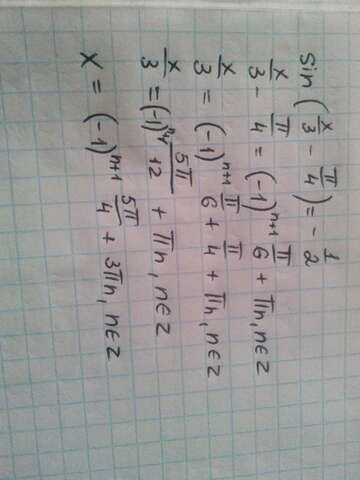 Sin (x/3 - π/4) = - 1/2
x/3 - π/4 = (-1)^(n+1) π/6 + πn, n∈z
x/3 = (-1)^(n+1) π/6 + π/4 + πn, n∈z
x/3 = (-1)^(n+1) 5π/12 + πn, n∈z
x = (-1)^(n+1) 5π/4 + 3πn, n∈z